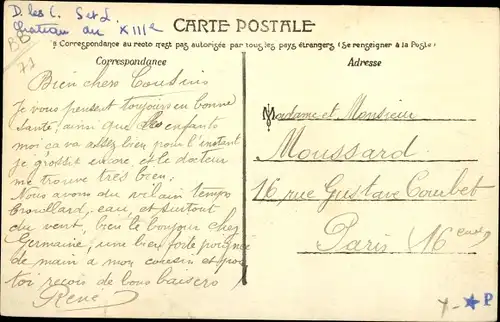 D. les C. S et L
Chateau du XIIIe
BB
71
CARTE POSTALE
La Correspondance au recto n'est pas autorisée par tous les pays étrangers (Se renseigner à la Poste)
Correspondance
Adresse
Bien chers Cousins
Je vous pensent toujours en bonne
santé, ainsi que les enfants
moi ça va assez bien pour l'instant
je grossit encore, et le docteur
me trouve très bien;
Nous avons du vilain temps
brouillard, eau, et surtout
du vent, bien le bonjour chez
Germaine, une bien forte poignée
de main a mon cousin et pour
toi reçois de bons baisers
René
Madame et Monsieur
Moussard
16 rue Gustave Courbet
Paris (16eme)
P